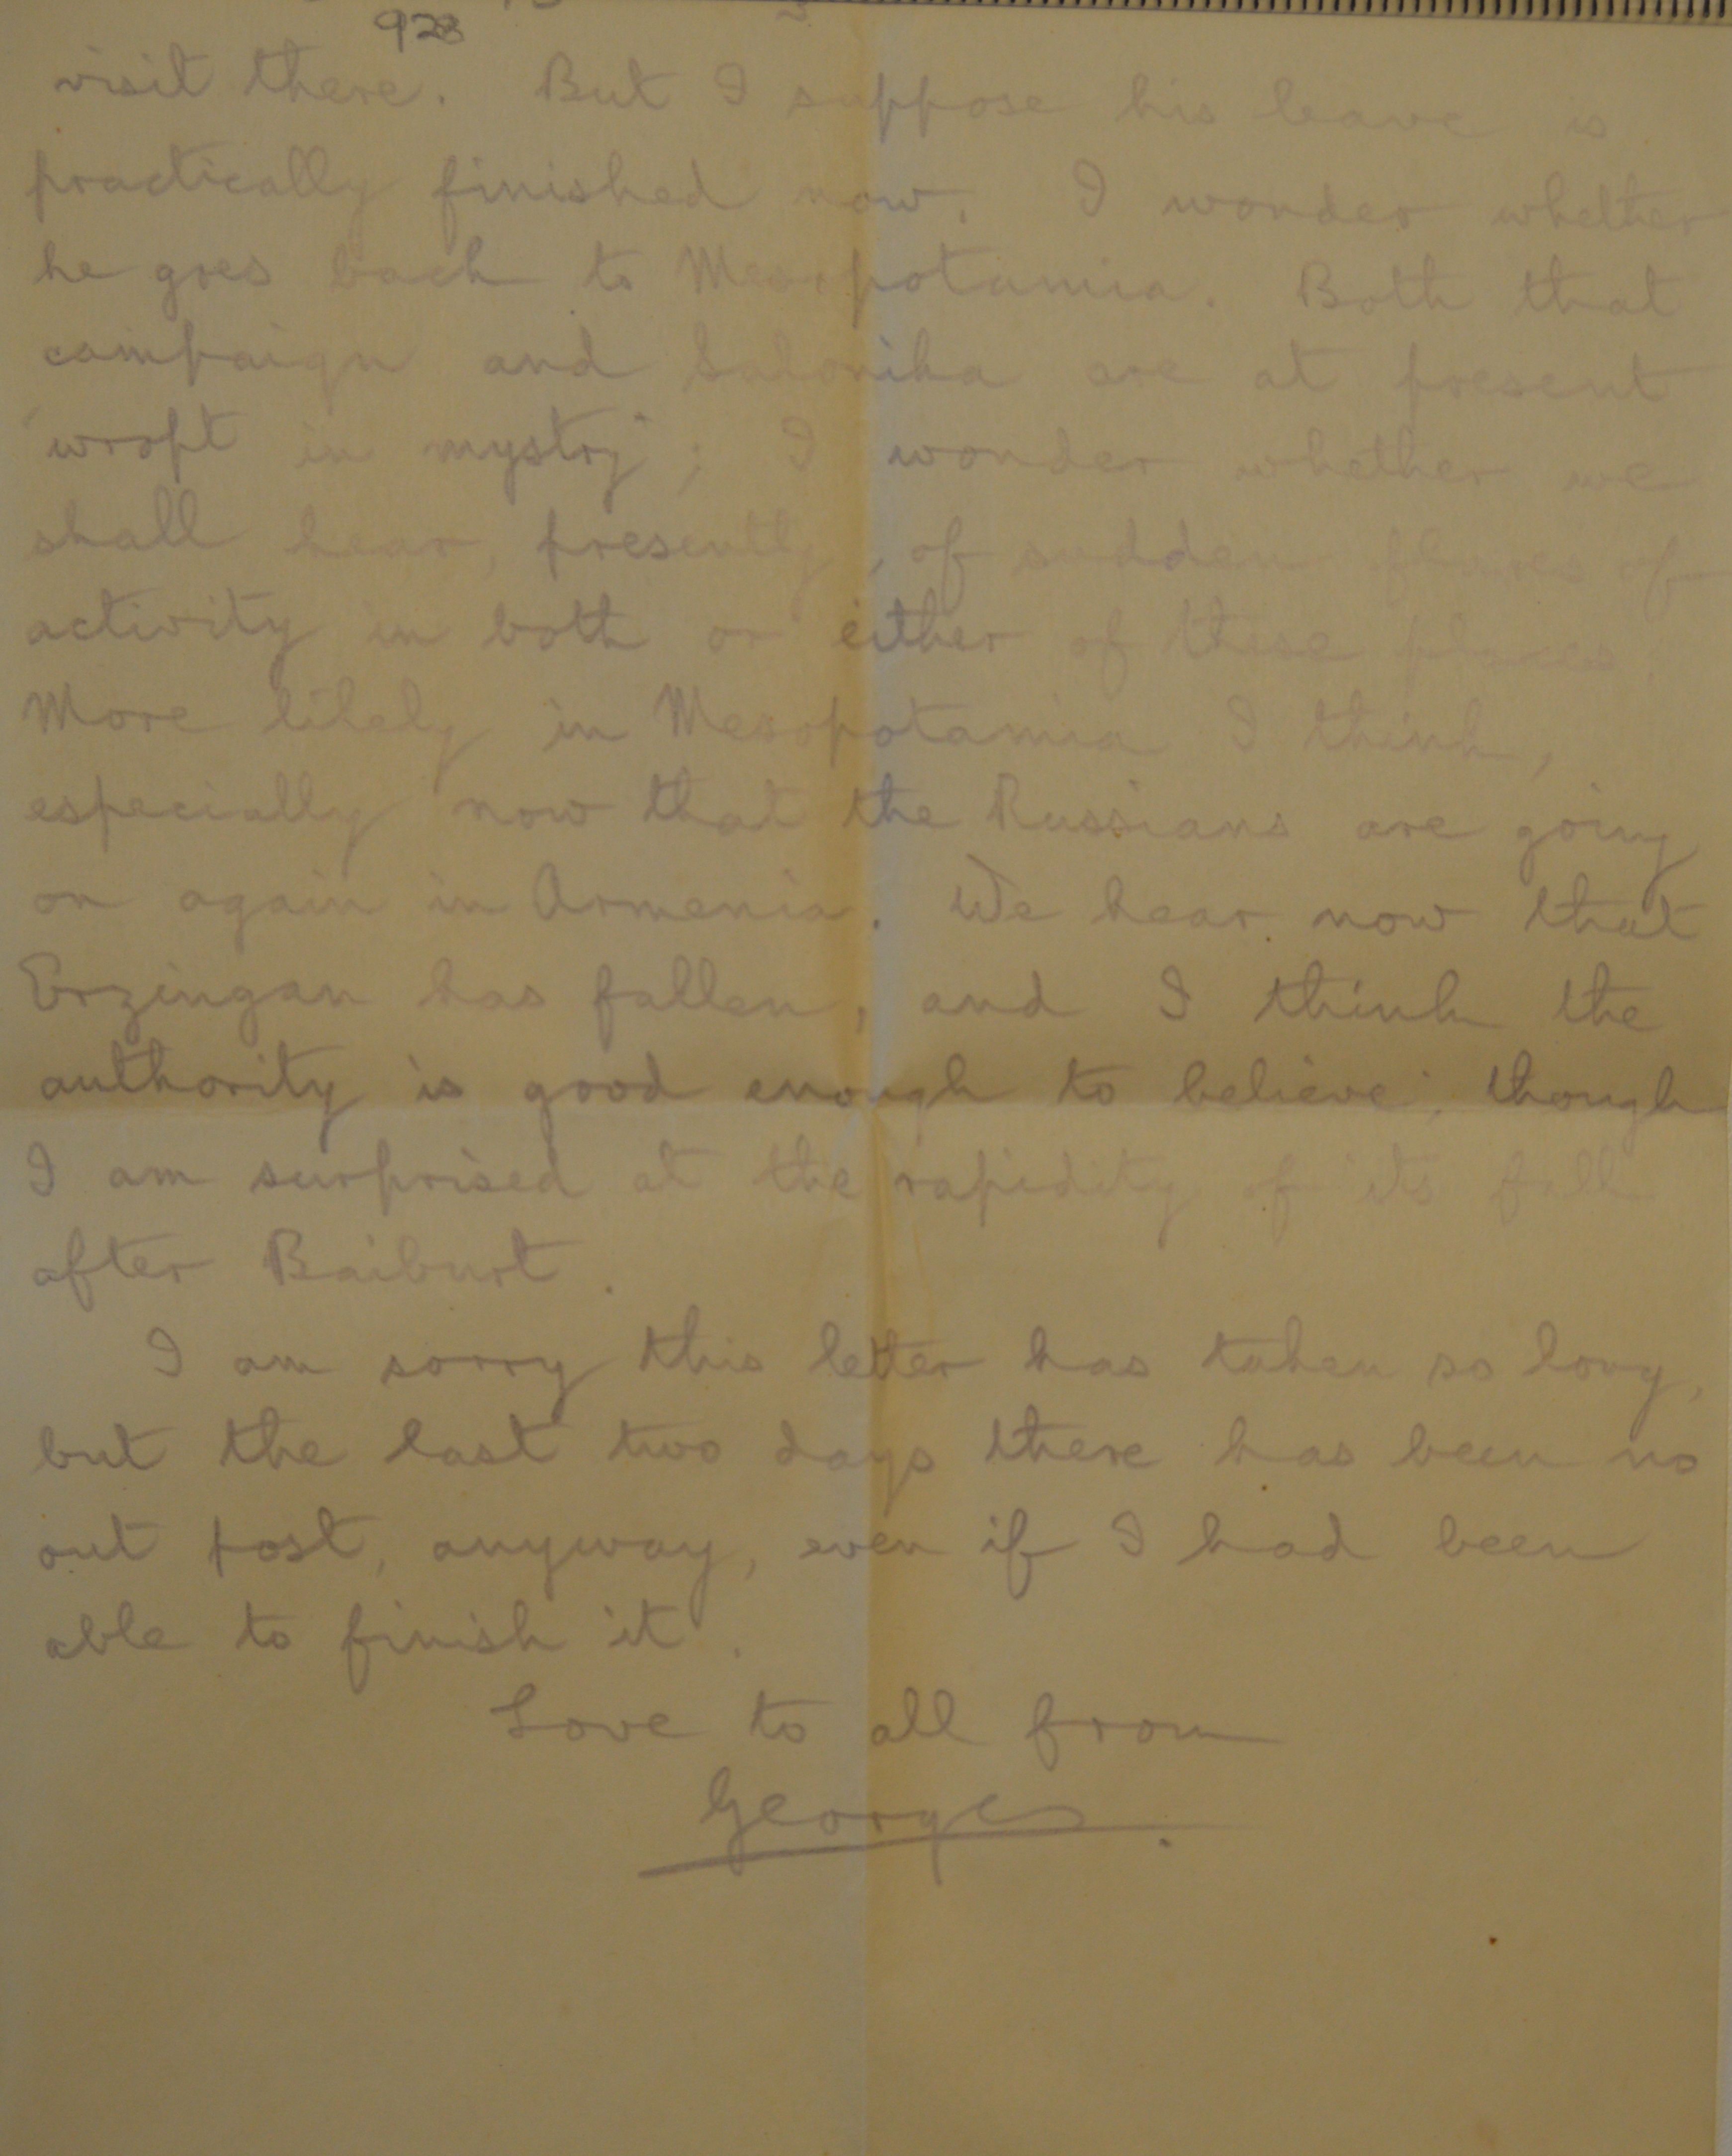 928
visit there. But I suppose his leave is
practically finished now. I wonder whether
he goes back to Mesopotamia. Both that
campaign and Salonika are at present
"wropt in mystry"; I wonder whether we
shall hear, presently, of sudden flares of
activity in both or either of these places.
More likely in Mesopotamia I think,
especially now that the Russians are going
on again in Armenia. We hear now that
Erzingan has fallen, and I think the
authority is good enough to believe; though
I am surprised at the rapidity of its fall
after Baiburt.
I am sorry this letter has taken so long,
but the last two days there has been no
out post, anyway, even if I had been
able to finish it.
Love to all from
George.